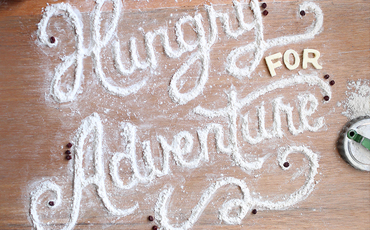 Hungry
FOR
Adventure